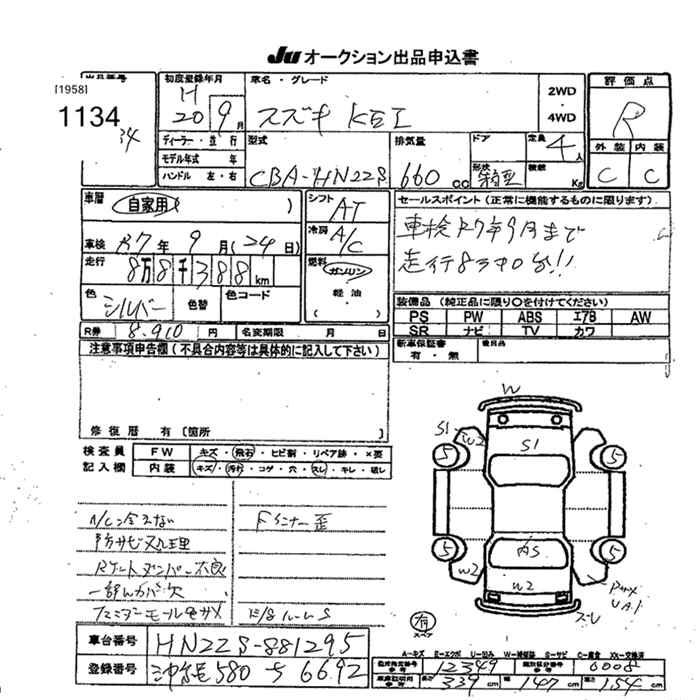 JU オークション出品申込書
[1958]
出品番号
1134
34
初度登録年月
H 20 9月
ディーラー・並行
モデル年式 年
ハンドル 左・右
車名・グレード
スズキ KEI
2WD
・
4WD
型式
CBA-HN22S
排気量
660 cc
ドア
形状
定員 4人
積載 Kg
評価点
R
外装 内装
C C
車歴
(自家用)
車検 R7年 9月(24日)
走行
8万8千388km
色
シルバー
色替
色コード
R券 8.910 円 名変期限 月 日
シフト
AT
冷房
A/C
燃料
ガソリン
軽油
( )
セールスポイント(正常に機能するものに限ります)
車検R7年9月まで
走行8万キロ台!!
装備品(純正品に限り○を付けてください)
PS PW ABS エアB AW
SR ナビ TV カワ
新車保証書
有・無
後日品
注意事項申告欄(不具合内容等は具体的に記入して下さい)
修復歴 有〔箇所 〕
検査員
記入欄
FW キズ・飛石・ヒビ割・リペア跡・×要
内装 キズ・汚れ・コゲ・穴・スレ・キレ・破レ
A/C冷えない
下廻サビ処理
Rゲートダンパー不良
Fインナー歪
E/Gルーム S
W
S1
W2
S1
5
5
5
5
AS
W2
W2
有
スペア
ズレ
A-キズ E-エクボ U-凹み W-補修跡 S-サビ C-腐食 XX-交換済
車台番号 HN22S-881295
登録番号 沖縄580 ち 6692
型式指定番号 12349 類別区分番号 0008
長さ 339cm 幅 147cm 高さ 154cm